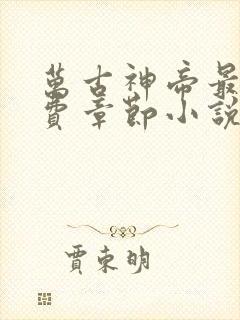 萬古神帝最
費章節小說
賈東明